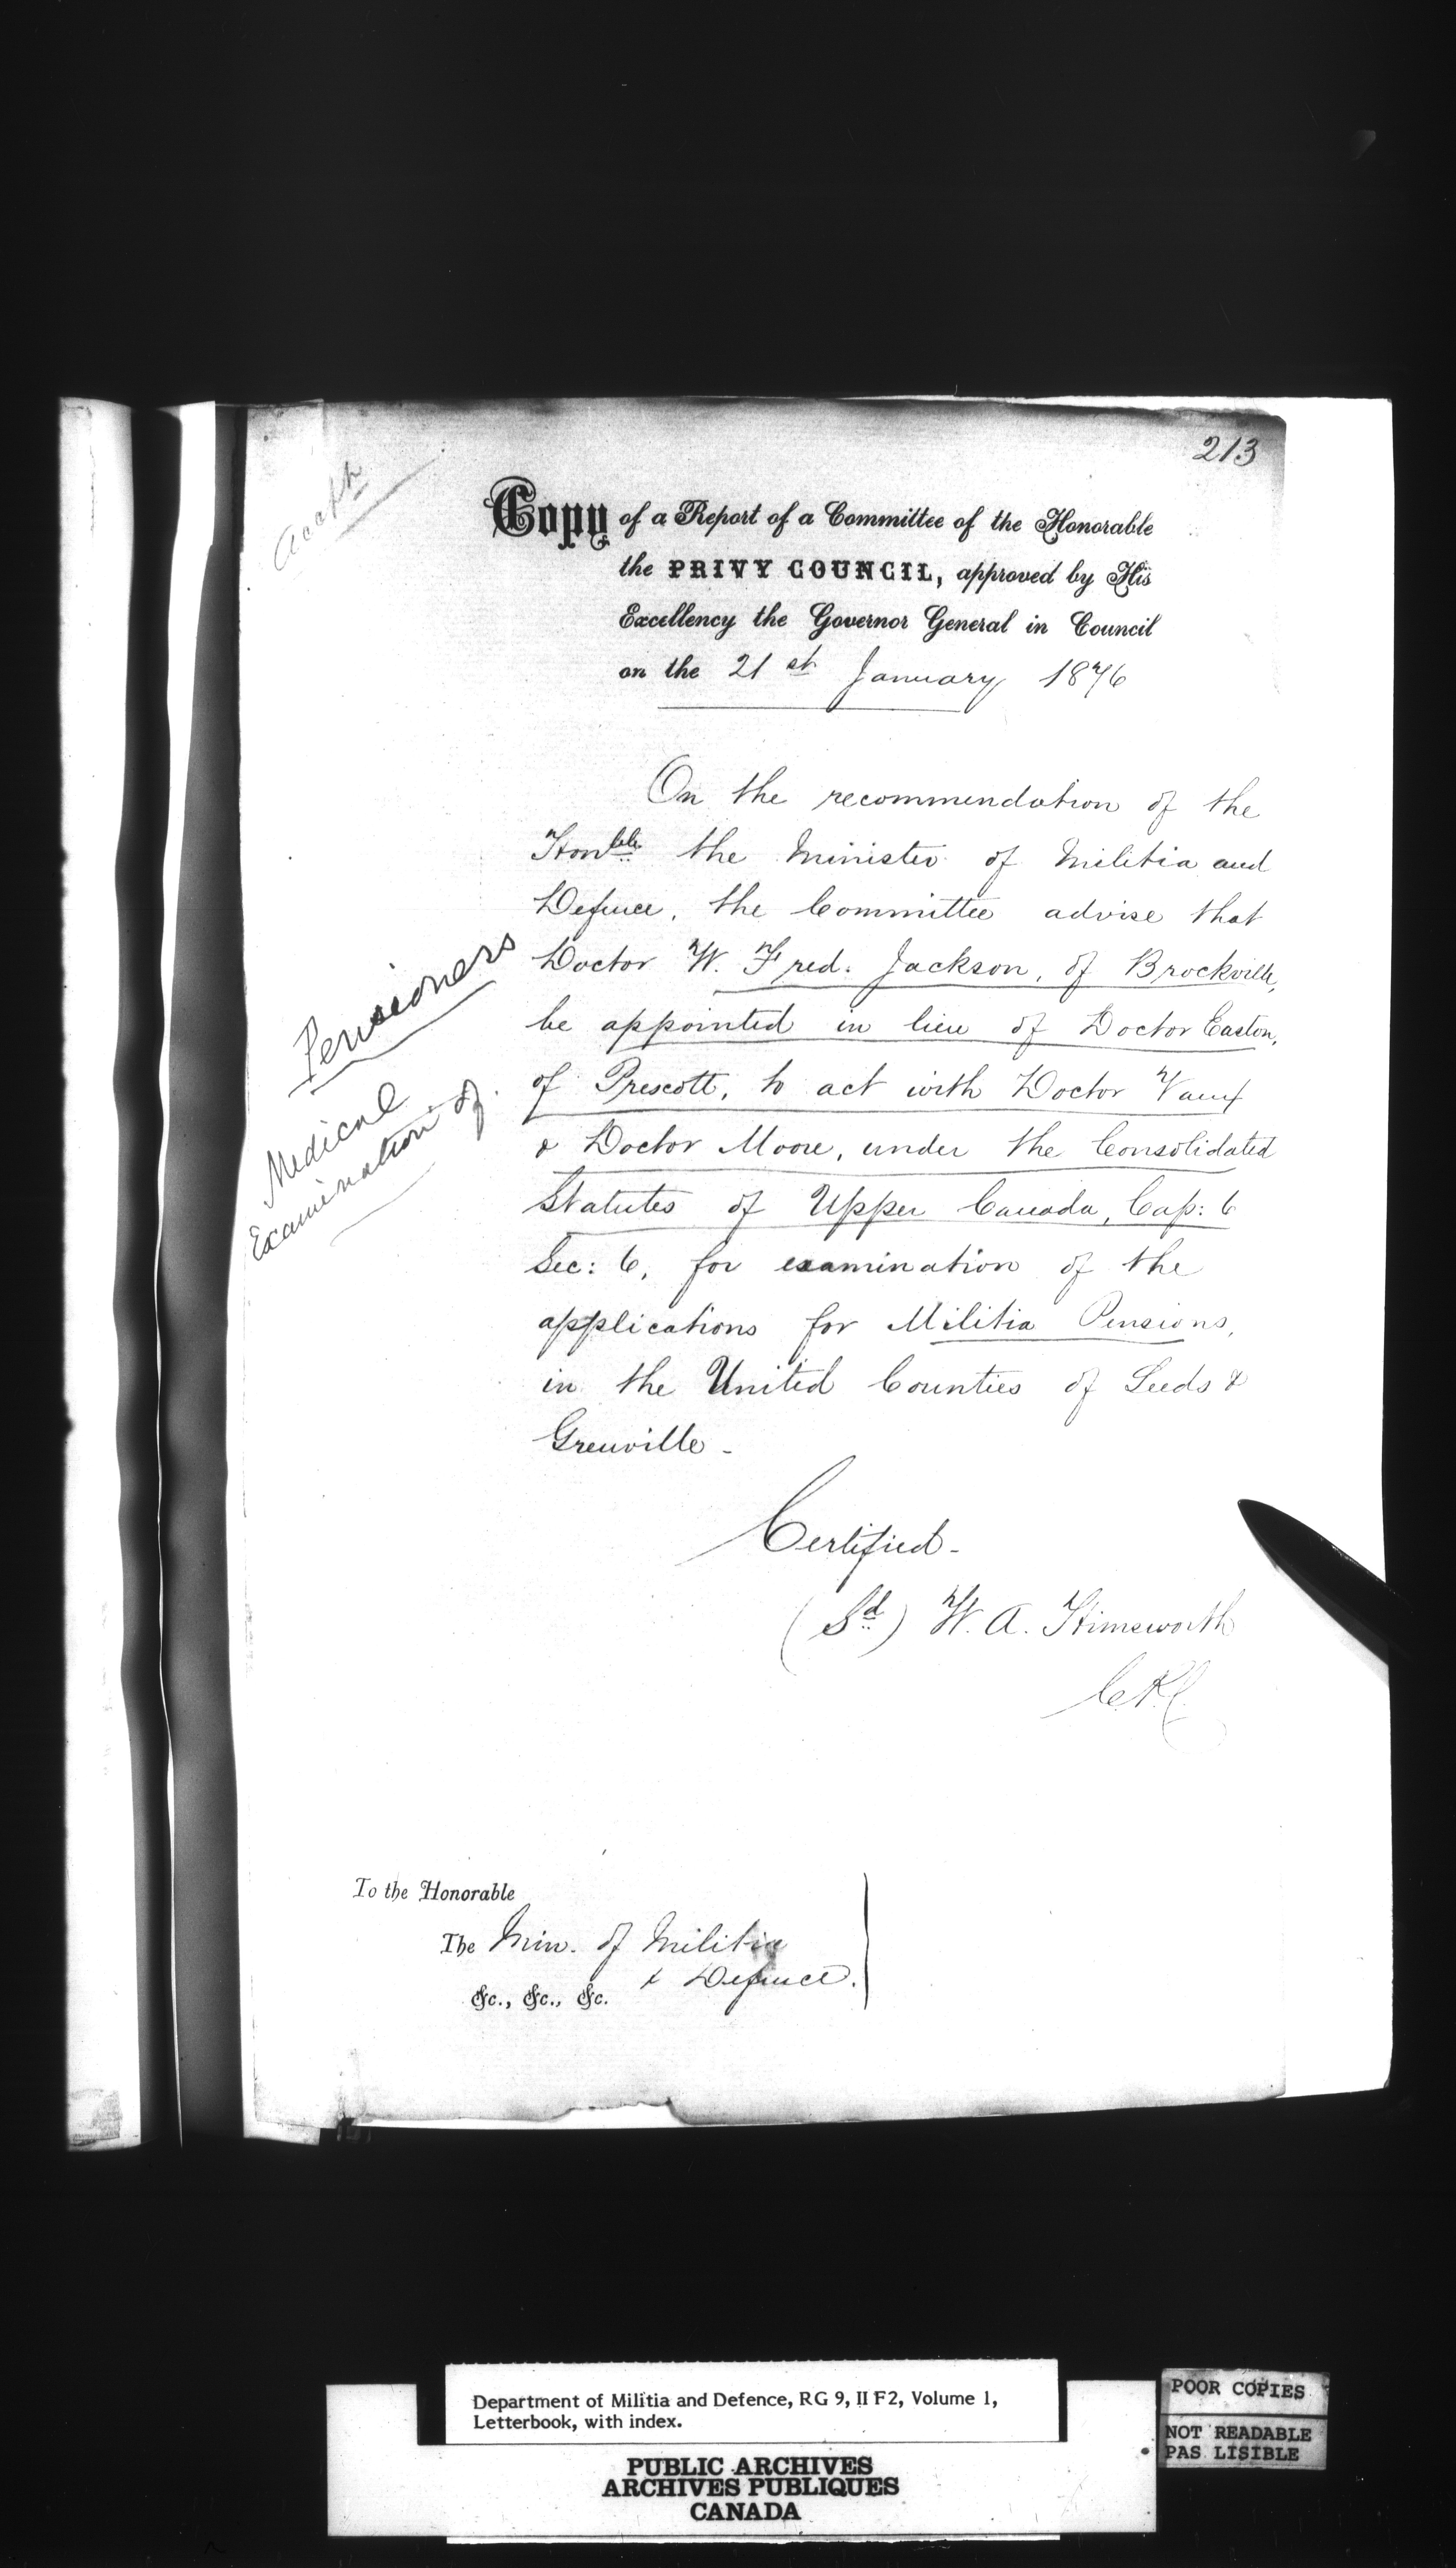 213
Copy of a Report of a Committee of the Honorable
the PRIVY COUNCIL, approved by His
Excellency the Governor General in Council
on the 21st January 1876
On the recommendation of the
Honble the Minister of Militia and
Defence, the Committee advise that
Doctor W. Fred. Jackson, of Brockville,
be appointed in lieu of Doctor Easton,
of Prescott, to act with Doctor Vaux
& Doctor Moore, under the Consolidated
Statutes of Upper Canada, Cap: 6
Sec: 6, for examination of the
applications for Militia Pensions,
in the United Counties of Leeds &
Grenville -
Pensioners
Medical
Examination of.
Certified -
(Sd) W. A. Himsworth
C.P.C.
To the Honorable
The Min. of Militia
& Defence.
&c., &c., &c.
Department of Militia and Defence, RG 9, II F2, Volume 1,
Letterbook, with index.
PUBLIC ARCHIVES
ARCHIVES PUBLIQUES
CANADA
POOR COPIES
NOT READABLE
PAS LISIBLE